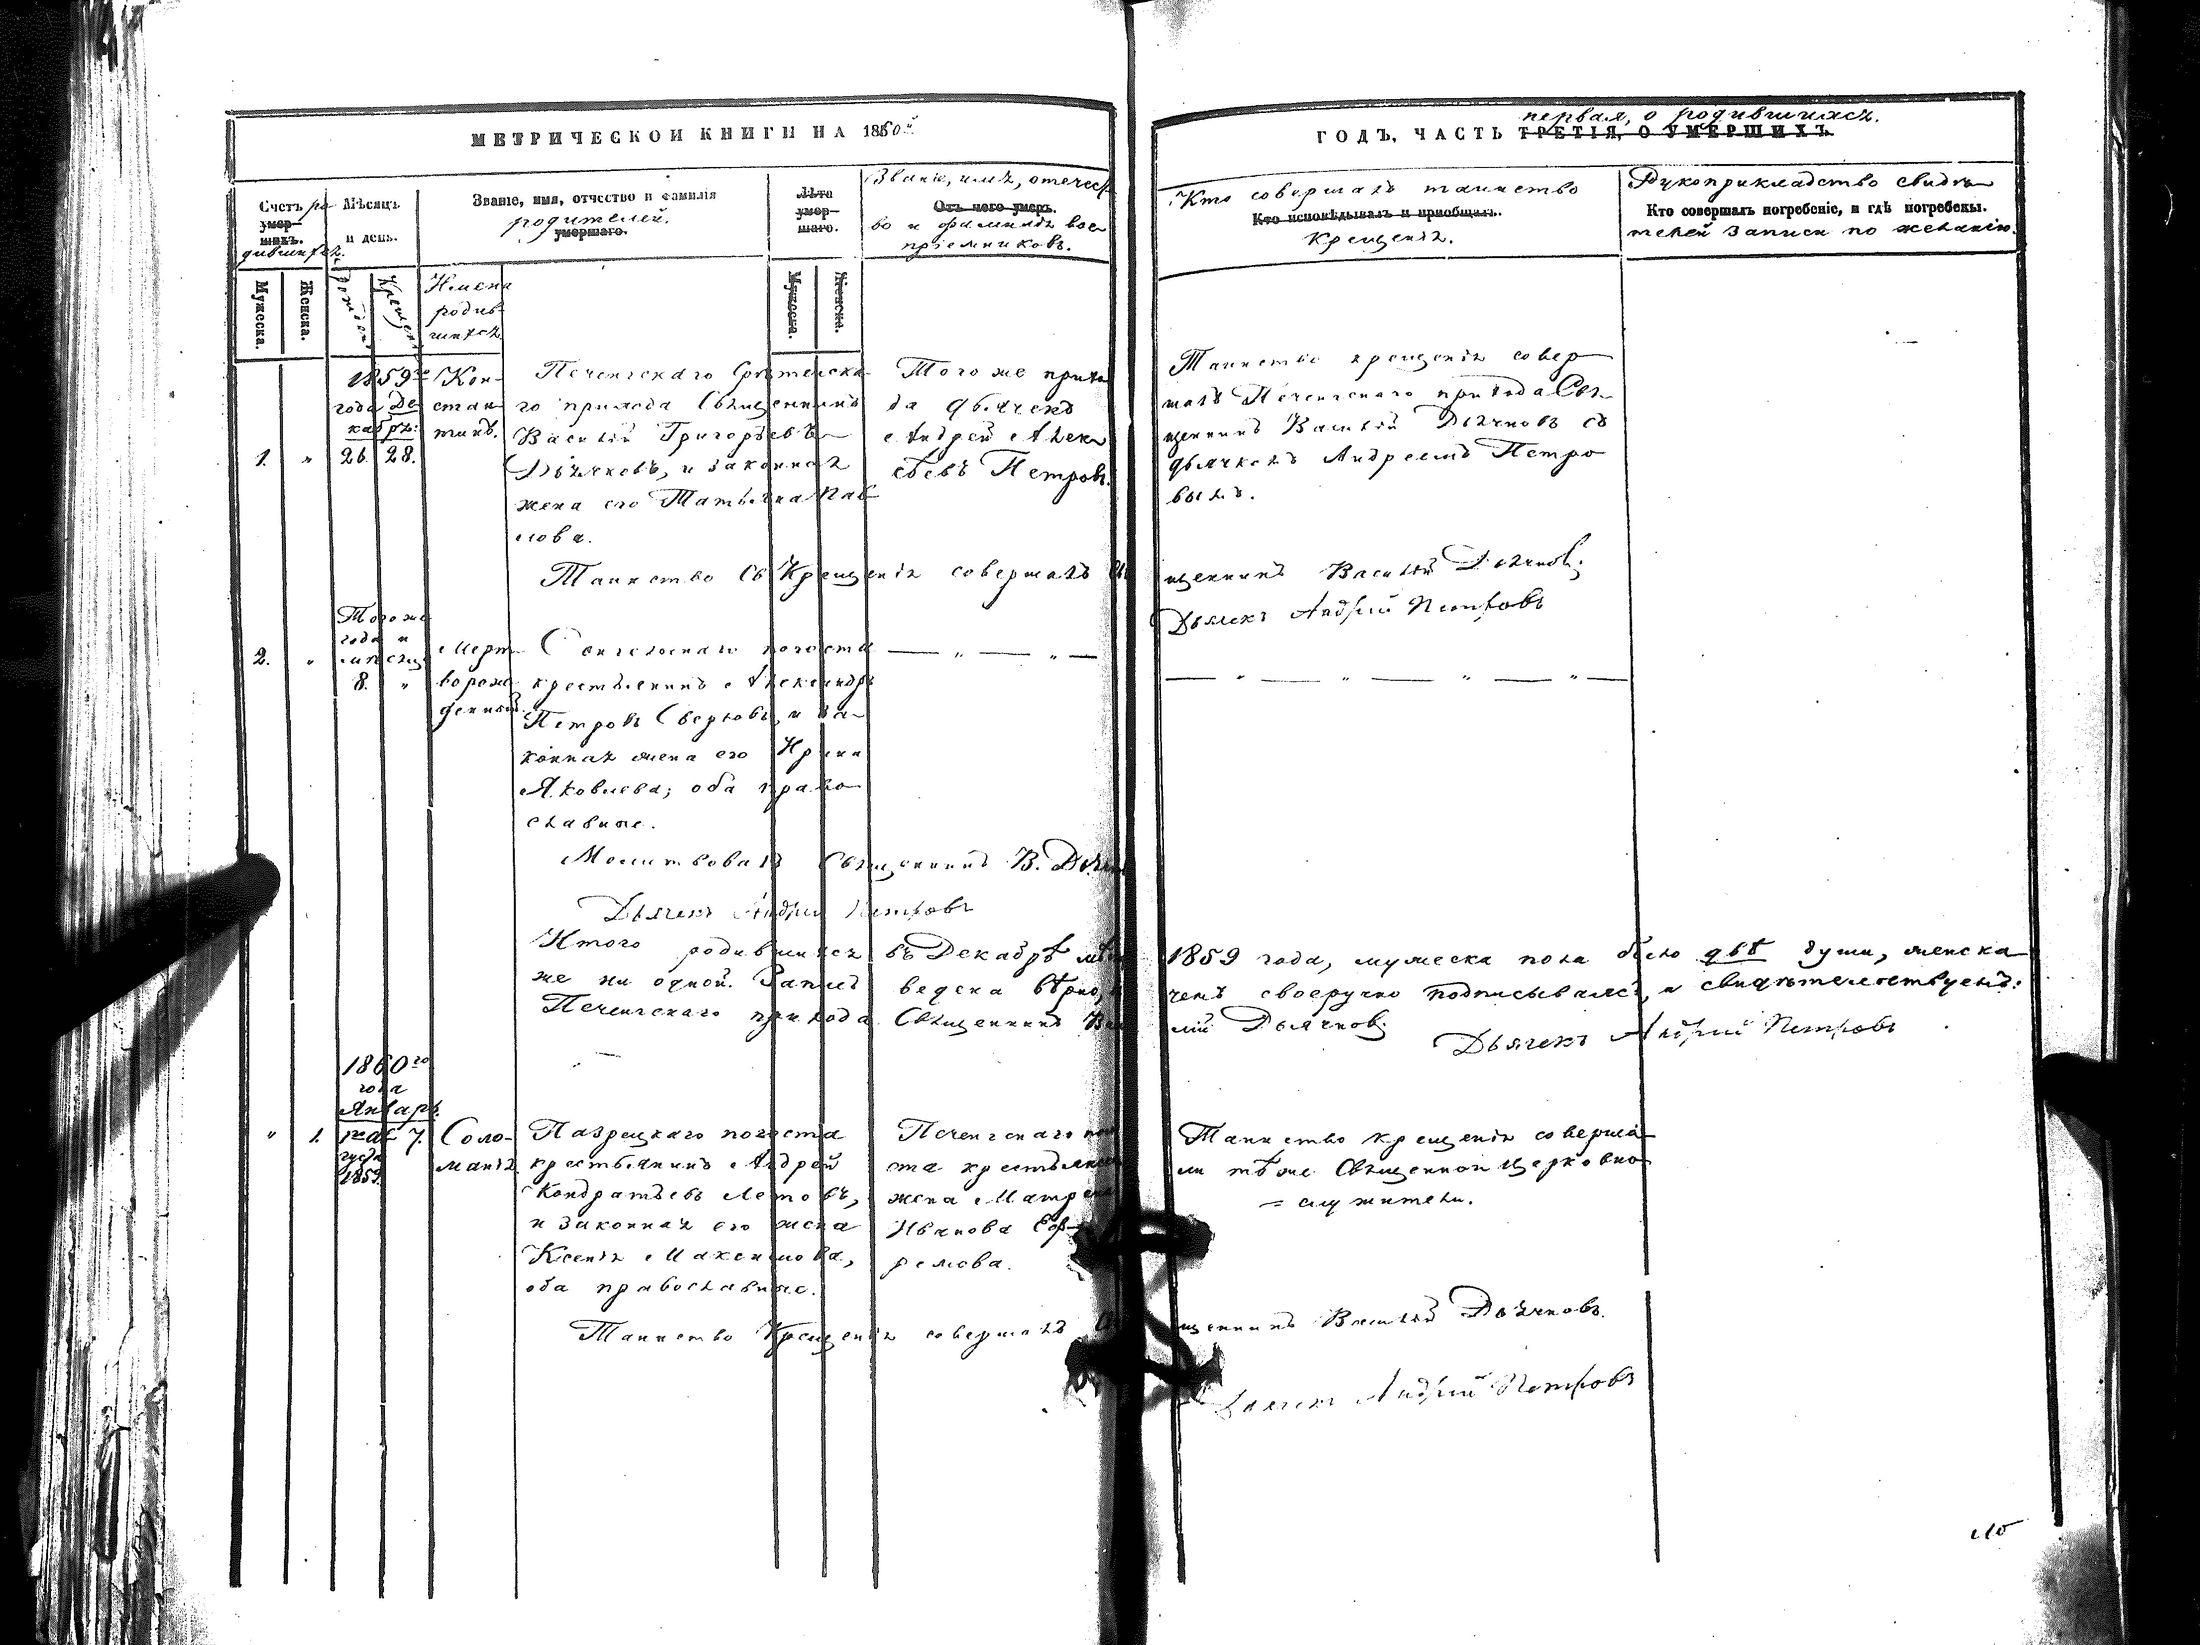 МЕТРИЧЕСКОЙ КНИГИ НА 1860й
первая, о родившихся.
ГОДЪ, ЧАСТЬ ТРЕТІЯ, О УМЕРШИХЪ.
Счетъ ро
умер-
шихъ.
дившихся.
Мѣсяцъ
и день.
Званіе, имя, отчество и фамилія
родителей.
умершаго.
Лѣта
умер-
шаго.
Званіе, имя, отчест
Отъ чего умеръ.
во и фамилія вос
пріемниковъ.
Кто совершалъ таинство
Кто исповѣдывалъ и пріобщалъ.
Крещенія.
Рукоприкладство свидѣ
Кто совершалъ погребеніе, и гдѣ погребены.
телей записи по желанію.
Мужеска.
Женска.
Крещен
Имена
родив-
шихся
Мужеска.
Женска.
1859го
года Де
кабрь.
1. " 26. 28.
Кон-
стан-
тинъ.
Печенгскаго
го прихода Священникъ
Василій Григорьевъ
Дьячковъ, и законная
жена его Татьяна Пав
лова.
Того же прихо
да дьячекъ
Андрей Алек
сѣевъ Петровъ.
Таинство крещенія совер
шалъ Печенгскаго прихода Свя-
щенникъ Василій Дьячковъ съ
дьячкомъ Андреемъ Петро
вымъ.
Таинство Св Крещенія совершалъ Свя
щенникъ Василій Дьячковъ.
Дьячекъ Андрей Петровъ
Того же
года и
мѣсяца
2. " 8. "
Мерт-
ворож
денный.
погоста
крестьянинъ Александръ
Петровъ и за-
конная жена его Ирина
Яковлева; оба право
славные.
— " — " —
— " — " — " — " —
Молитвовалъ Священникъ В. Дьячк
Дьячекъ Андрей Петровъ
Итого родившихся въ Декабрѣ мѣс 1859 года, мужеска пола было двѣ души, женска
же ни одной. Запись ведена вѣрно, въ чемъ своеручно подписываясь, и свидѣтельствуемъ:
Печенгскаго прихода Священникъ Васи лій Дьячковъ.
Дьячекъ Андрей Петровъ
1860го
года
Январь.
" 1. 7.
1859.
Соло-
манія
Пазрецкаго погоста
крестьянинъ Андрей
Кондратьевъ Летовъ,
и законная его жена
Ксенія Максимова,
оба православные.
Печенгскаго пого
ста крестьянск
жена Матрена
Иванова Еф-
ремова.
Таинство крещенія соверша-
ли тѣже Священно и Церковно
= служители.
Таинство Крещенія совершалъ Свя
щенникъ Василій Дьячковъ.
Дьячекъ Андрей Петровъ